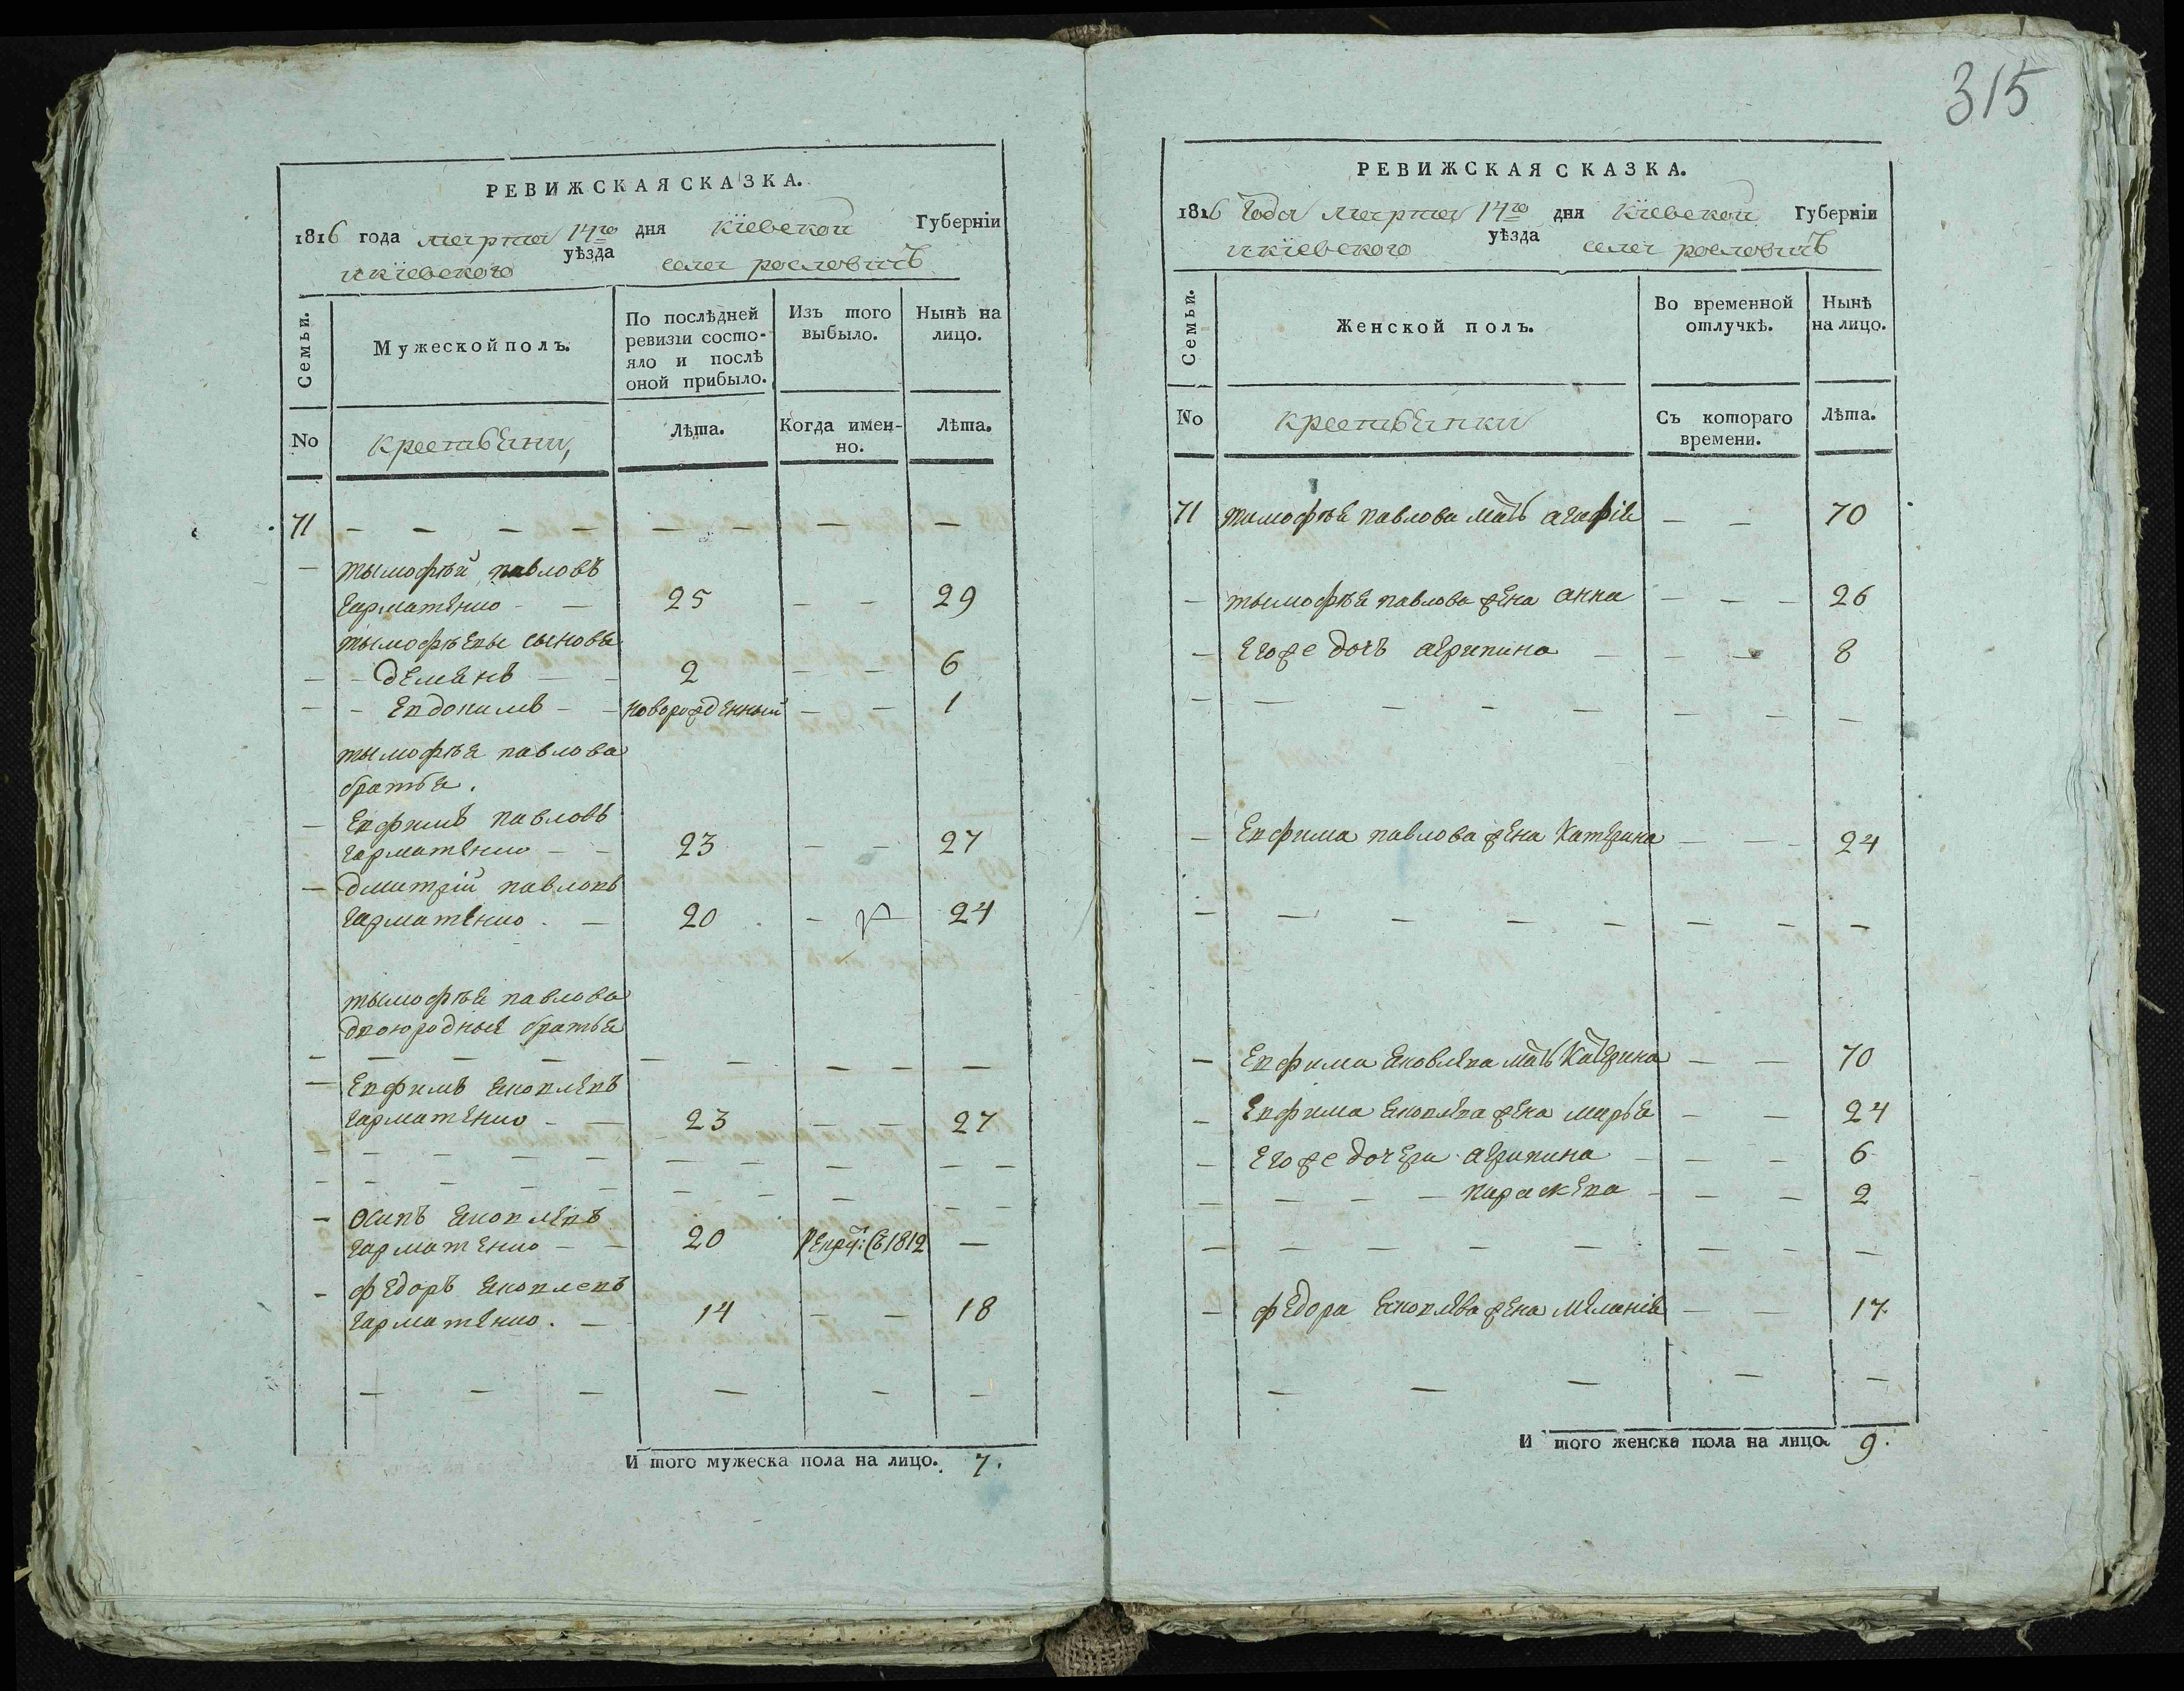 315
РЕВИЖСКАЯ СКАЗКА.
1816 года марта 14го дня Кіевской Губерніи
и кіевского уѣзда села рословичъ
Семьи.
Мужеской полъ.
По послѣдней
ревизіи состо-
яло и послѣ
оной прибыло.
Изъ того
выбыло.
Нынѣ на
лицо.
No
крестьяни,
Лѣта.
Когда имен-
но.
Лѣта.
71 — — — — — — — —
— тымофѣй павловъ
гарматенко — — 25 — — 29
тымофѣевы сыновья
— — демянъ — — 2 — — 6
— — Евдокимъ — — новорожденный — — 1
тымофѣя павлова
братья.
— Ефимъ павловъ
гарматенко — — 23 — — 27
— дмитрій павловъ
гарматенко — — 20 — — 24
тымофѣя павлова
двоюродныя братья
— — — — — — — — —
— Ефимъ яковлевъ
гарматенко — — 23 — — 27
— — — — — — — — — —
— — — — — — — — — —
— осипъ яковлевъ
гарматенко — — 20 рекру: въ 1812 —
— федоръ яковлевъ
гарматенко. — 14 — — 18
— — — — — —
И того мужеска пола на лицо. 7.
РЕВИЖСКАЯ СКАЗКА.
1816 года марта 14го дня Кіевской Губерніи
и кіевского уѣзда села рословичъ
Семьи.
Женской полъ.
Во временной
отлучкѣ.
Нынѣ
на лицо.
No
крестьянки
Съ котораго
времени.
Лѣта.
71 тимофѣя павлова мать агафія — — 70
— тымофѣя павлова жена анна — — — 26
— его же дочь агрипина — — — 8
— — — — — — — —
— Ефима павлова жена катерина — — — 24
— — — — — — — —
— Ефима яковлева мать катерина — — 70
— Ефима яковлева жена марья — — 24
— его же дочери агрипина — — — 6
— — — — параскева — — — 2
— — — — — — — —
— федора яковлева жена меланія — — 17.
— — — — —
И того женска пола на лицо. 9.